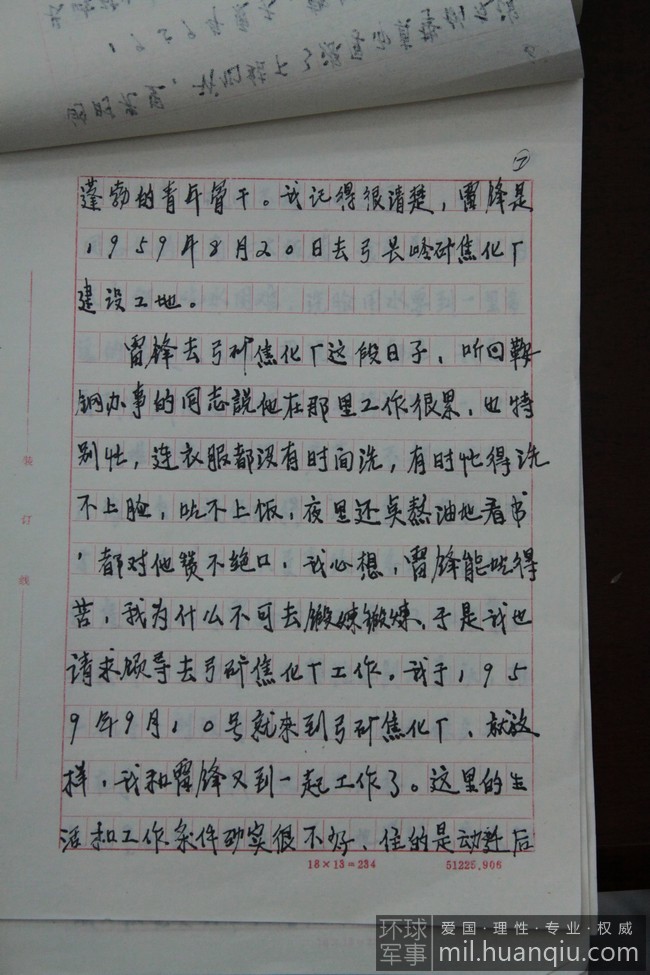 ⑦
蓬勃的青年骨干。我记得很清楚，雷锋是
1959年8月20日去弓长岭矿焦化厂
建设工地。
雷锋去弓矿焦化厂这段日子，听回鞍
钢办事的同志説他在那里工作很累，也特
别忙，连衣服都没有时间洗，有时忙得洗
不上脸，吃不上饭，夜里还点熬油地看书
，都对他赞不绝口，我心想，雷锋能吃得
苦，我为什么不可去锻炼锻炼，于是我也
请求领导去弓矿焦化厂工作。我于195
9年9月10号就来到弓矿焦化厂，就这
样，我和雷锋又到一起工作了。这里的生
活和工作条件确实很不好，住的是动迁后
18×13=234
51225.906
装
订
线
环球
军事
爱国·理性·专业·权威
mil.huanqiu.com